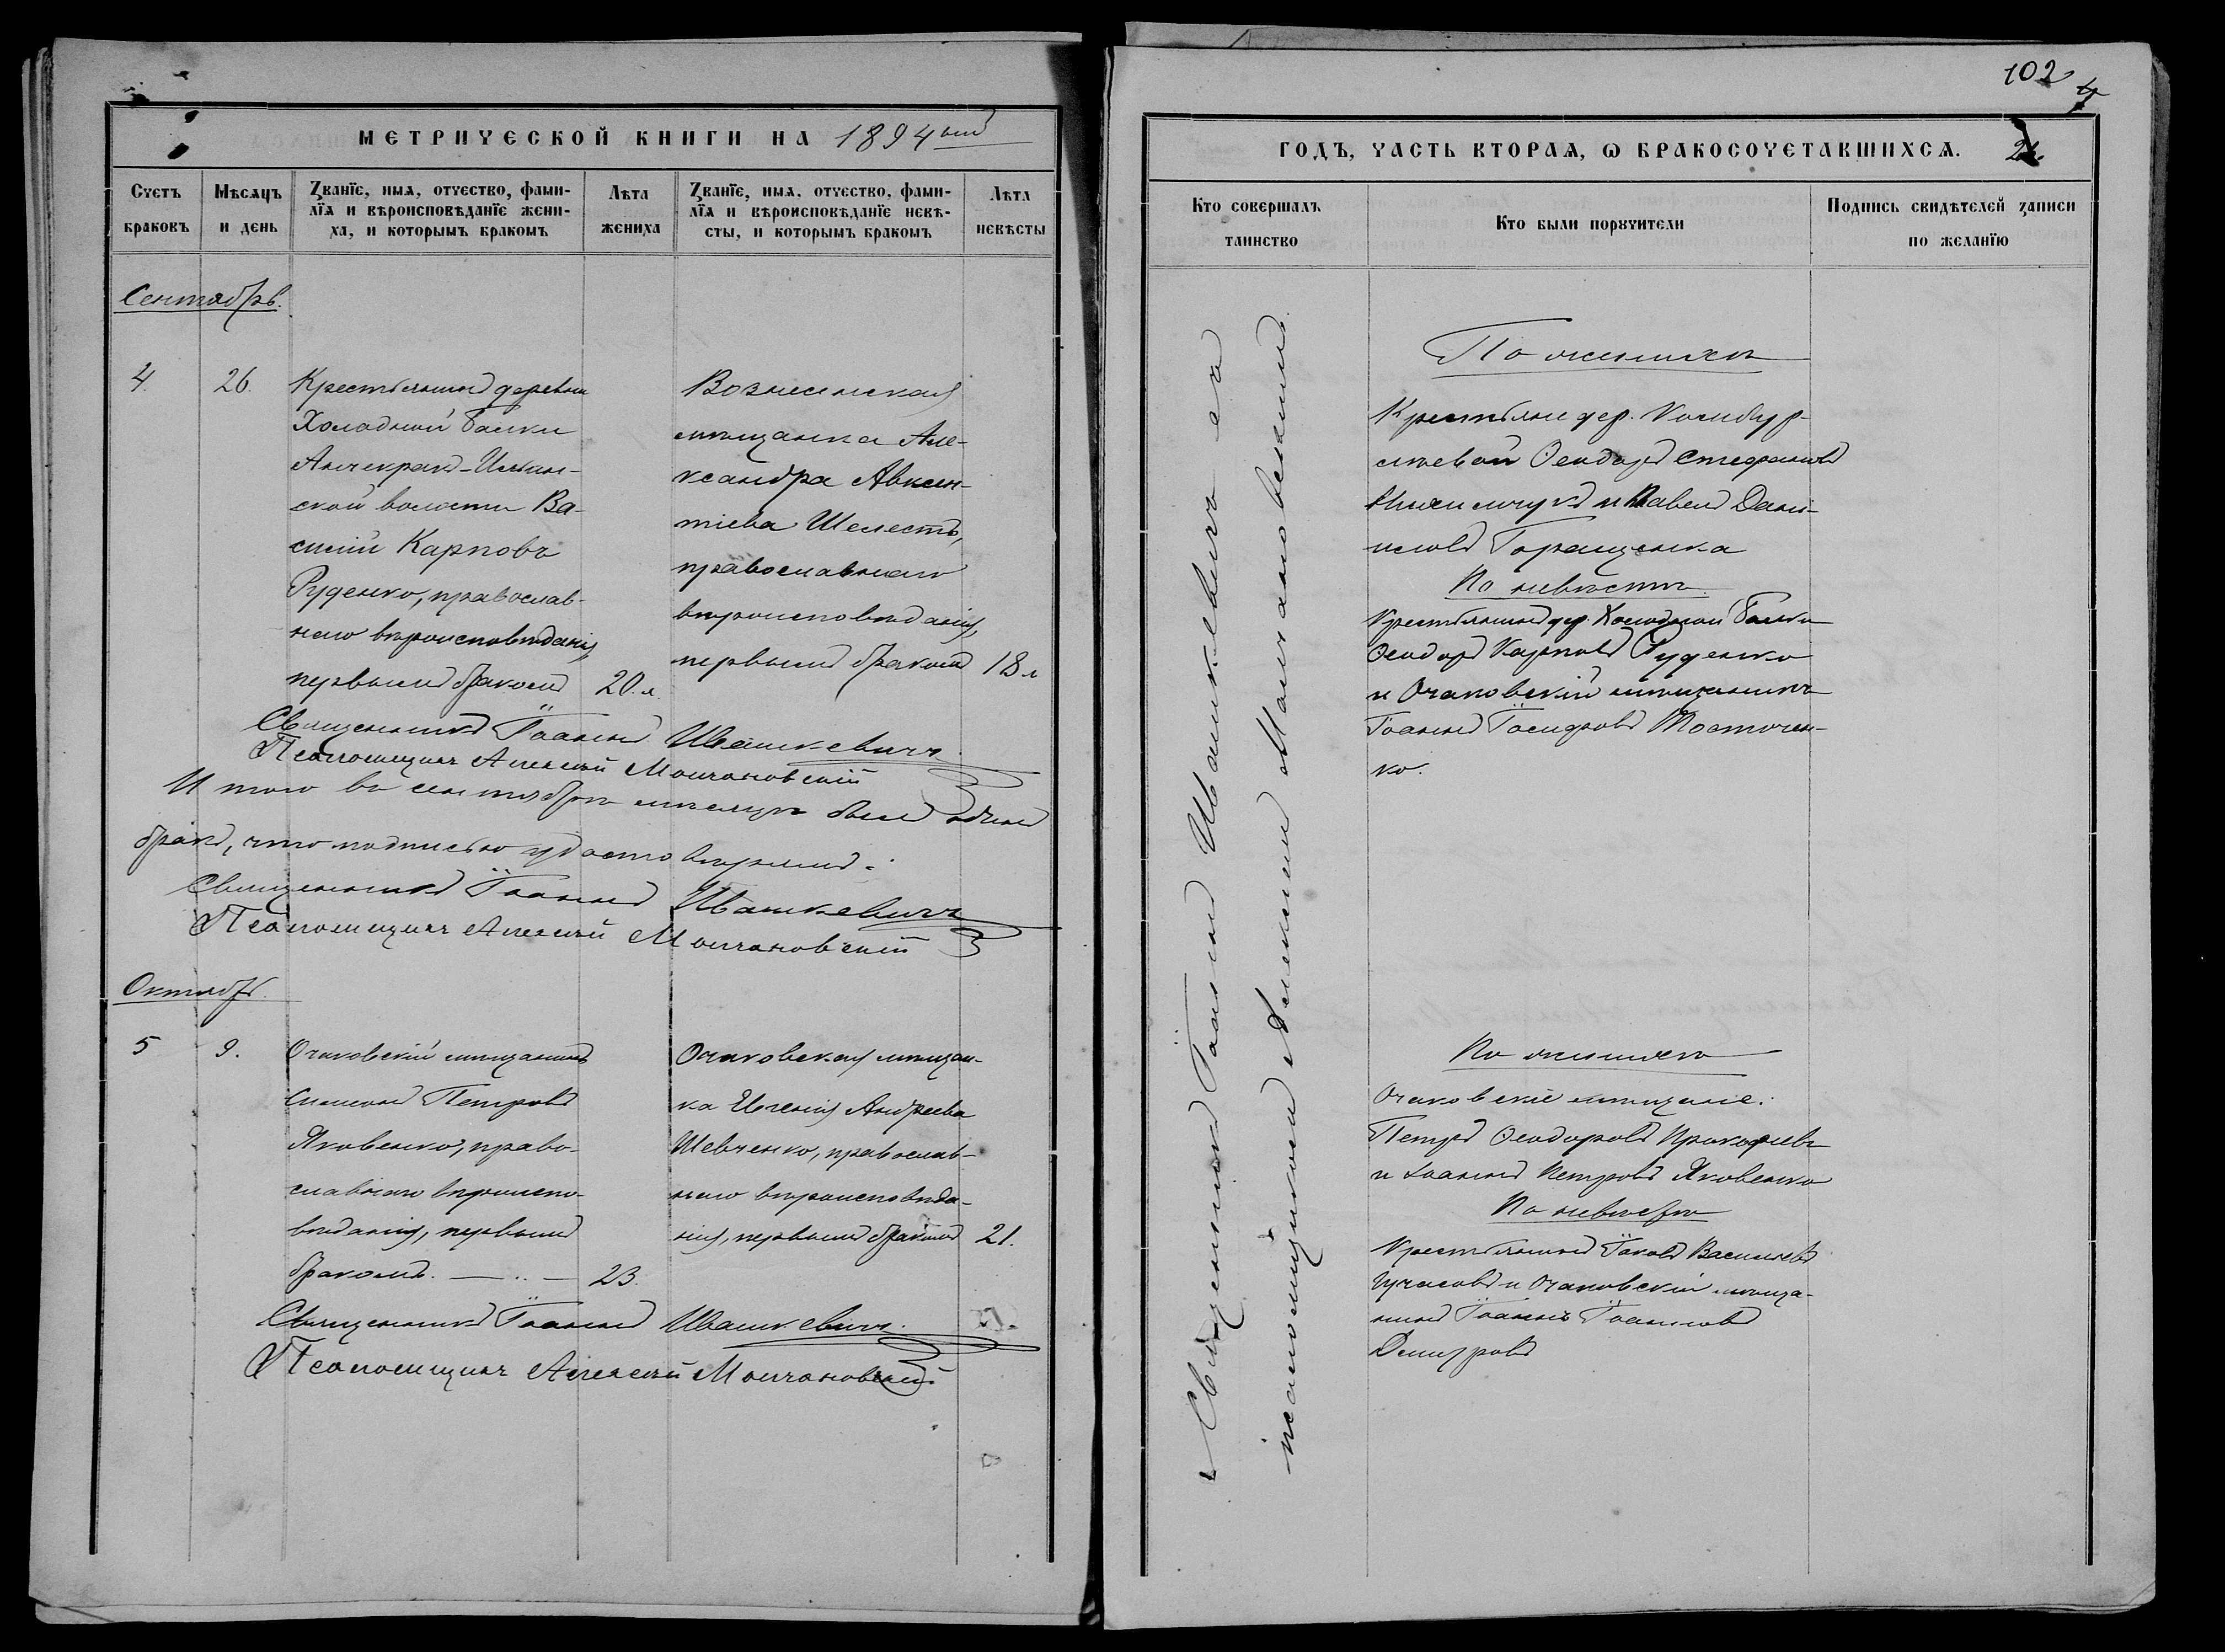 МЕТРИЧЕСКОЙ КНИГИ НА 1894ый
Счетъ браковъ
Мѣсяцъ и день
Званіе, имя, отчество, фами-
лія и вѣроисповѣданіе жени-
ха, и которымъ бракомъ
Лѣта жениха
Званіе, имя, отчество, фами-
лія и вѣроисповѣданіе невѣ-
сты, и которымъ бракомъ
Лѣта невѣсты
Сентябрь.
4.
26.
Крестьянинъ деревни
Холодной Балки
Анчекрак-Ильин-
ской волости Ва-
силій Карповъ
Руденко, православ-
наго вѣроисповѣданія,
первымъ бракомъ
20.л.
Вознесенская
мѣщанка Але-
ксандра Авксен-
тіева Шелестъ,
православнаго
вѣроисповѣданія,
первымъ бракомъ
18 л
Священникъ Іоаннъ Ивашкевичъ.
Псаломщикъ Алексѣй Молчановскій
Итого въ сентябрѣ мѣсяцѣ былъ одинъ
бракъ, что подписью удостовѣряемъ.
Священникъ Іоаннъ Ивашкевичъ
Псаломщикъ Алексѣй Молчановскій
Октябрь.
5
9.
Очаковскій мѣщанинъ
Симеонъ Петровъ
Яковенко, право-
славнаго вѣроиспо-
вѣданія, первымъ
бракомъ.
23.
Очаковская мѣщан-
ка Евгенія Андреева
Шевченко, православ-
наго вѣроисповѣда-
нія, первымъ бракомъ
21.
Священникъ Іоаннъ Ивашкевичъ.
Псаломщикъ Алексѣй Молчановскій.
102
ГОДЪ, ЧАСТЬ ВТОРАЯ, Ѡ БРАКОСОЧЕТАВШИХСЯ.
Кто совершалъ таинство
Кто были поручители
Подпись свидѣтелей записи по желанію
Священникъ Іоаннъ Ивашкевичъ съ
псаломщикомъ Алексѣемъ Молчановскимъ.
По женихѣ
Крестьяне дер.
Ѳеодоръ Стефановъ
и Павелъ Дани-
иловъ Горащенка
По невѣстѣ
Крестьянинъ дер. Холодной Балки
Ѳеодоръ Карповъ Руденко
и Очаковскій мѣщанинъ
Іоаннъ Іосифовъ
ко.
По женихѣ
Очаковскіе мѣщане:
Петръ Ѳеодоровъ Прокофіевъ
и Іоаннъ Петровъ Яковенко
По невѣстѣ
Крестьянинъ Іаковъ Васильевъ
и Очаковскій мѣща-
нинъ Іоаннъ Іоанновъ